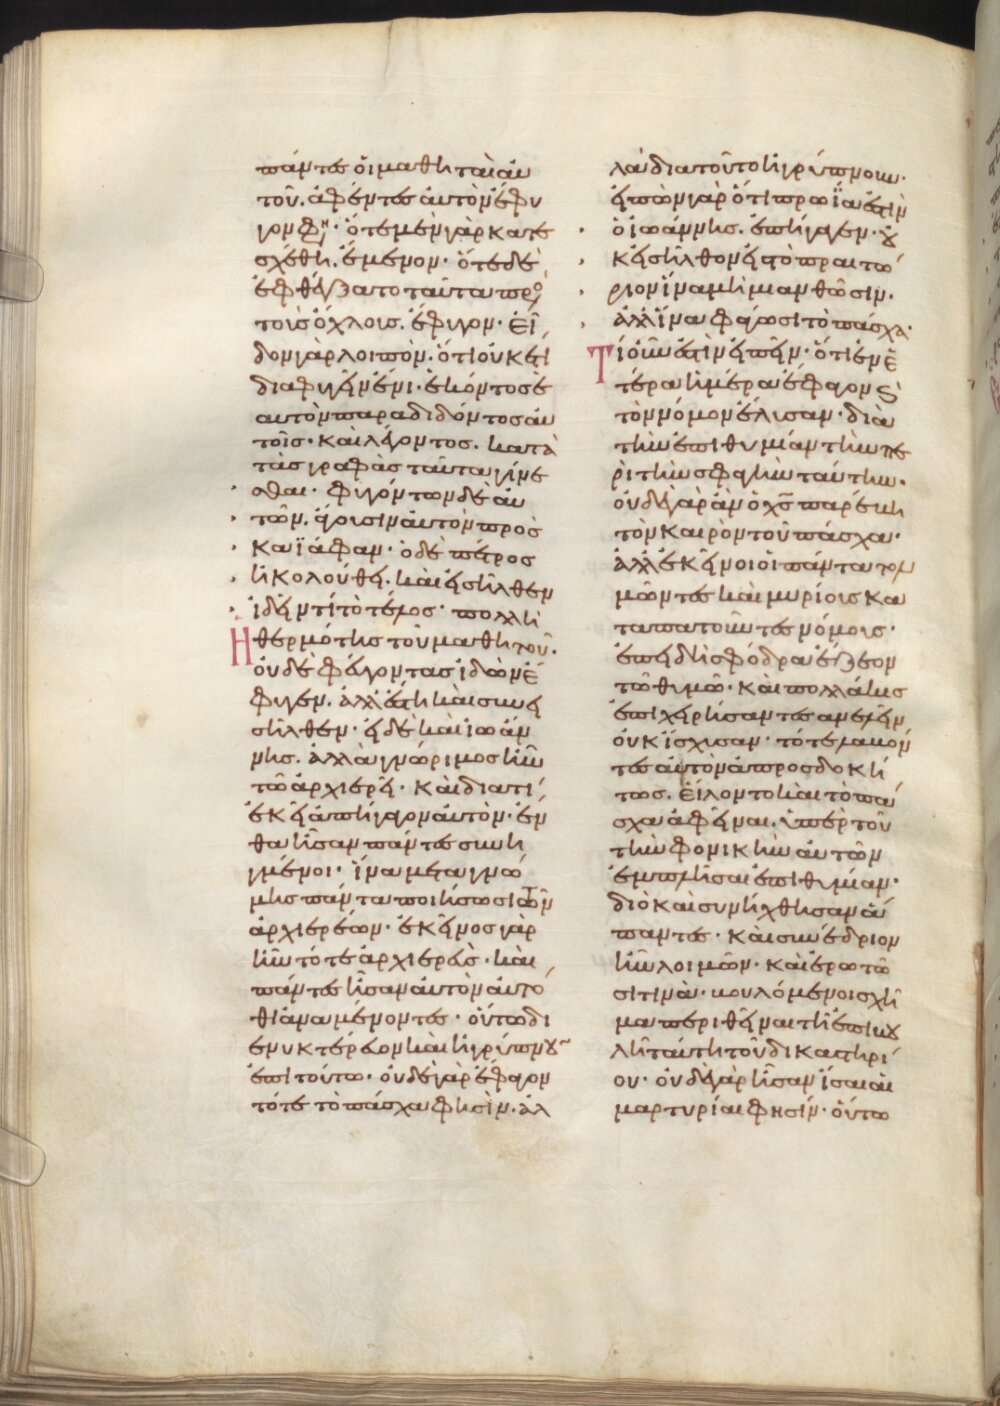 πάντες ὁι μαθηταὶ ἀυ
τοῦ. ἀφέντες ἀυτὸν ἔφυ
γον φη· ὅτε μὲν γὰρ κατε
σχέθη. ἔμενον· ὅτε δὲ
ἐφθέγξατο ταῦτα προ
τοις ὄχλοις. ἔφυγον· εἶ
δον γὰρ λοιπὸν. ὅτι οὐκέτι
διαφυγεῖν ἔνι· ἑκόντος ἑ
αυτὸν παραδιδόντος ἀυ
τοῖς· καὶ λέγοντος. κατὰ
τὰς γραφὰς ταῦτα γίνε
σθαι· φυγόντων δὲ ἀυ
τῶν. ἄγουσιν ἀυτὸν προς
καϊάφαν· ὁ δὲ πέτρος
ἠκολούθει. καὶ εἰσῆλθεν
ἰδεῖν τί τὸ τέλος· πολλὴ
Η θερμότης τοῦ μαθητοῦ.
οὐδὲ φεύγοντας ἰδὼν ἔ
φυγεν. ἀλλ ἔστη καὶ συνει
σῆλθεν· εἰ δὲ καὶ ἰωάν
νης. ἀλλὰ γνώριμος ἦν
τῶ ἀρχιερεῖ· Καὶ διατί
ἐκεῖ ἀπήγαγον ἀυτὸν· ἔν
θα ἦσαν πάντες συνη
γμένοι· ἵνα μετα γνώ
μης πάντα ποιήσωσι τῶν
ἀρχιερέων· ἐκεῖνος γὰρ
ἦν τότε ἀρχιερεύς· καὶ
πάντες ἦσαν ἀυτὸν ἀυτό
θι ἀναμένοντες· οὕτω δι
ενυκτέρευον καὶ ἠγρύπνου
ἐπι τούτω· οὐδε γὰρ ἔφαγον
τότε τὸ πάσχα φησὶν. ἀλ
λὰ δια τοῦτο ἠγρύπνουν.
ἐιπὼν γὰρ ὅτι πρωῒα ἐστὶν
ὁ ἰωάννης. ἐπήγαγεν· ου
κ εἰσῆλθον εἰς τὸ πραιτώ
ριον ἵνα μὴ μιανθῶσιν.
ἀλλ ἵνα φάγωσι τὸ πάσχα.
Τί οὖν ἐστὶν ἐιπεῖν· ὅτι ἐν ε
τέρα ἡμέρα ἔφαγον και
τὸν νόμον ἔλυσαν· διὰ
τὴν ἐπιθυμίαν τὴν πε
ρὶ τὴν σφαγὴν ταύτην.
οὐδε γὰρ ἂν ὁ χς παρέβη
τὸν καιρὸν τοῦ πάσχα·
ἀλλ ἐκεῖνοι ὁι πάντα τολ
μῶντες καὶ μυρίοις κα
ταπατοῦντες νόμοις·
ἐπειδὴ σφόδρα ἔζεον
τῶ θυμῶ· καὶ πολλάκις
ἐπιχειρήσαντες ἀνελεῖν
οὐκ ἴσχυσαν· τότε λαβόν
τες ἀυτὸν ἀπροσδοκή
τως. εἵλοντο καὶ τὸ πά
σχα ἀφεῖναι. ὑπὲρ τοῦ
τὴν φονικὴν ἀυτῶν
ἐμπλῆσαι ἐπιθυμίαν·
διὸ καὶ συνήχθησαν ἅ
παντες· καὶ συνέδριον
ἦν λοιμῶν· καὶ ἐρωτῶ
σι τινὰ· βουλόμενοι σχῆ
μα περιθεῖναι τῆ ἐπιβου
λῆ ταύτη τοῦ δικαστηρί
ου· οὐδε γὰρ ἦσαν ἴσαι αἱ
μαρτυρίαι φησίν· ὅυτω